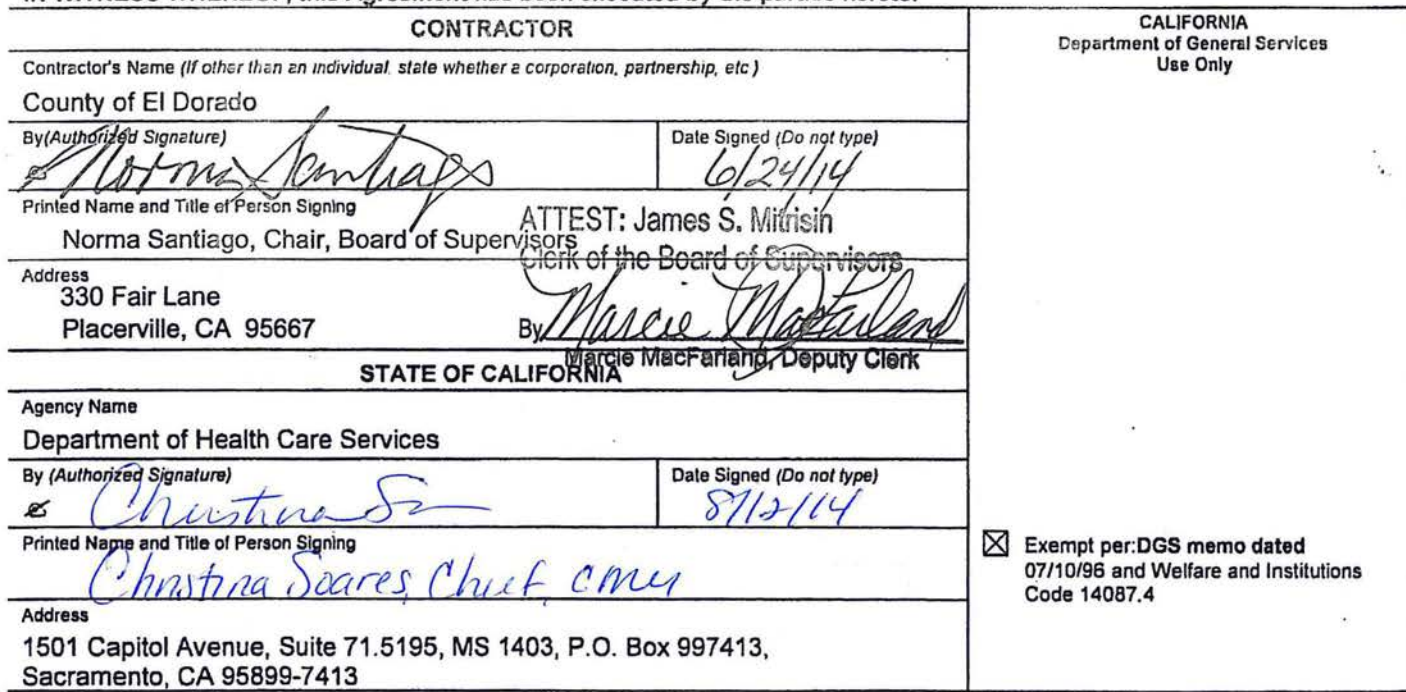 CONTRACTOR
Contractor's Name (If other than an individual, state whether a corporation, partnership, etc)
County of El Dorado
By(Authorized Signature)
Norma Santiago
Date Signed (Do not type)
6/24/14
Printed Name and Title of Person Signing
Norma Santiago, Chair, Board of Supervisors
ATTEST: James S. Mitrisin
Clerk of the Board of Supervisors
Address
330 Fair Lane
Placerville, CA 95667
By Marcie MacFarland
Marcie MacFarland, Deputy Clerk
STATE OF CALIFORNIA
Agency Name
Department of Health Care Services
By (Authorized Signature)
Christina S
Date Signed (Do not type)
8/12/14
Printed Name and Title of Person Signing
Christina Soares, Chief, CMU
Address
1501 Capitol Avenue, Suite 71.5195, MS 1403, P.O. Box 997413,
Sacramento, CA 95899-7413
CALIFORNIA
Department of General Services
Use Only
Exempt per:DGS memo dated
07/10/96 and Welfare and Institutions
Code 14087.4